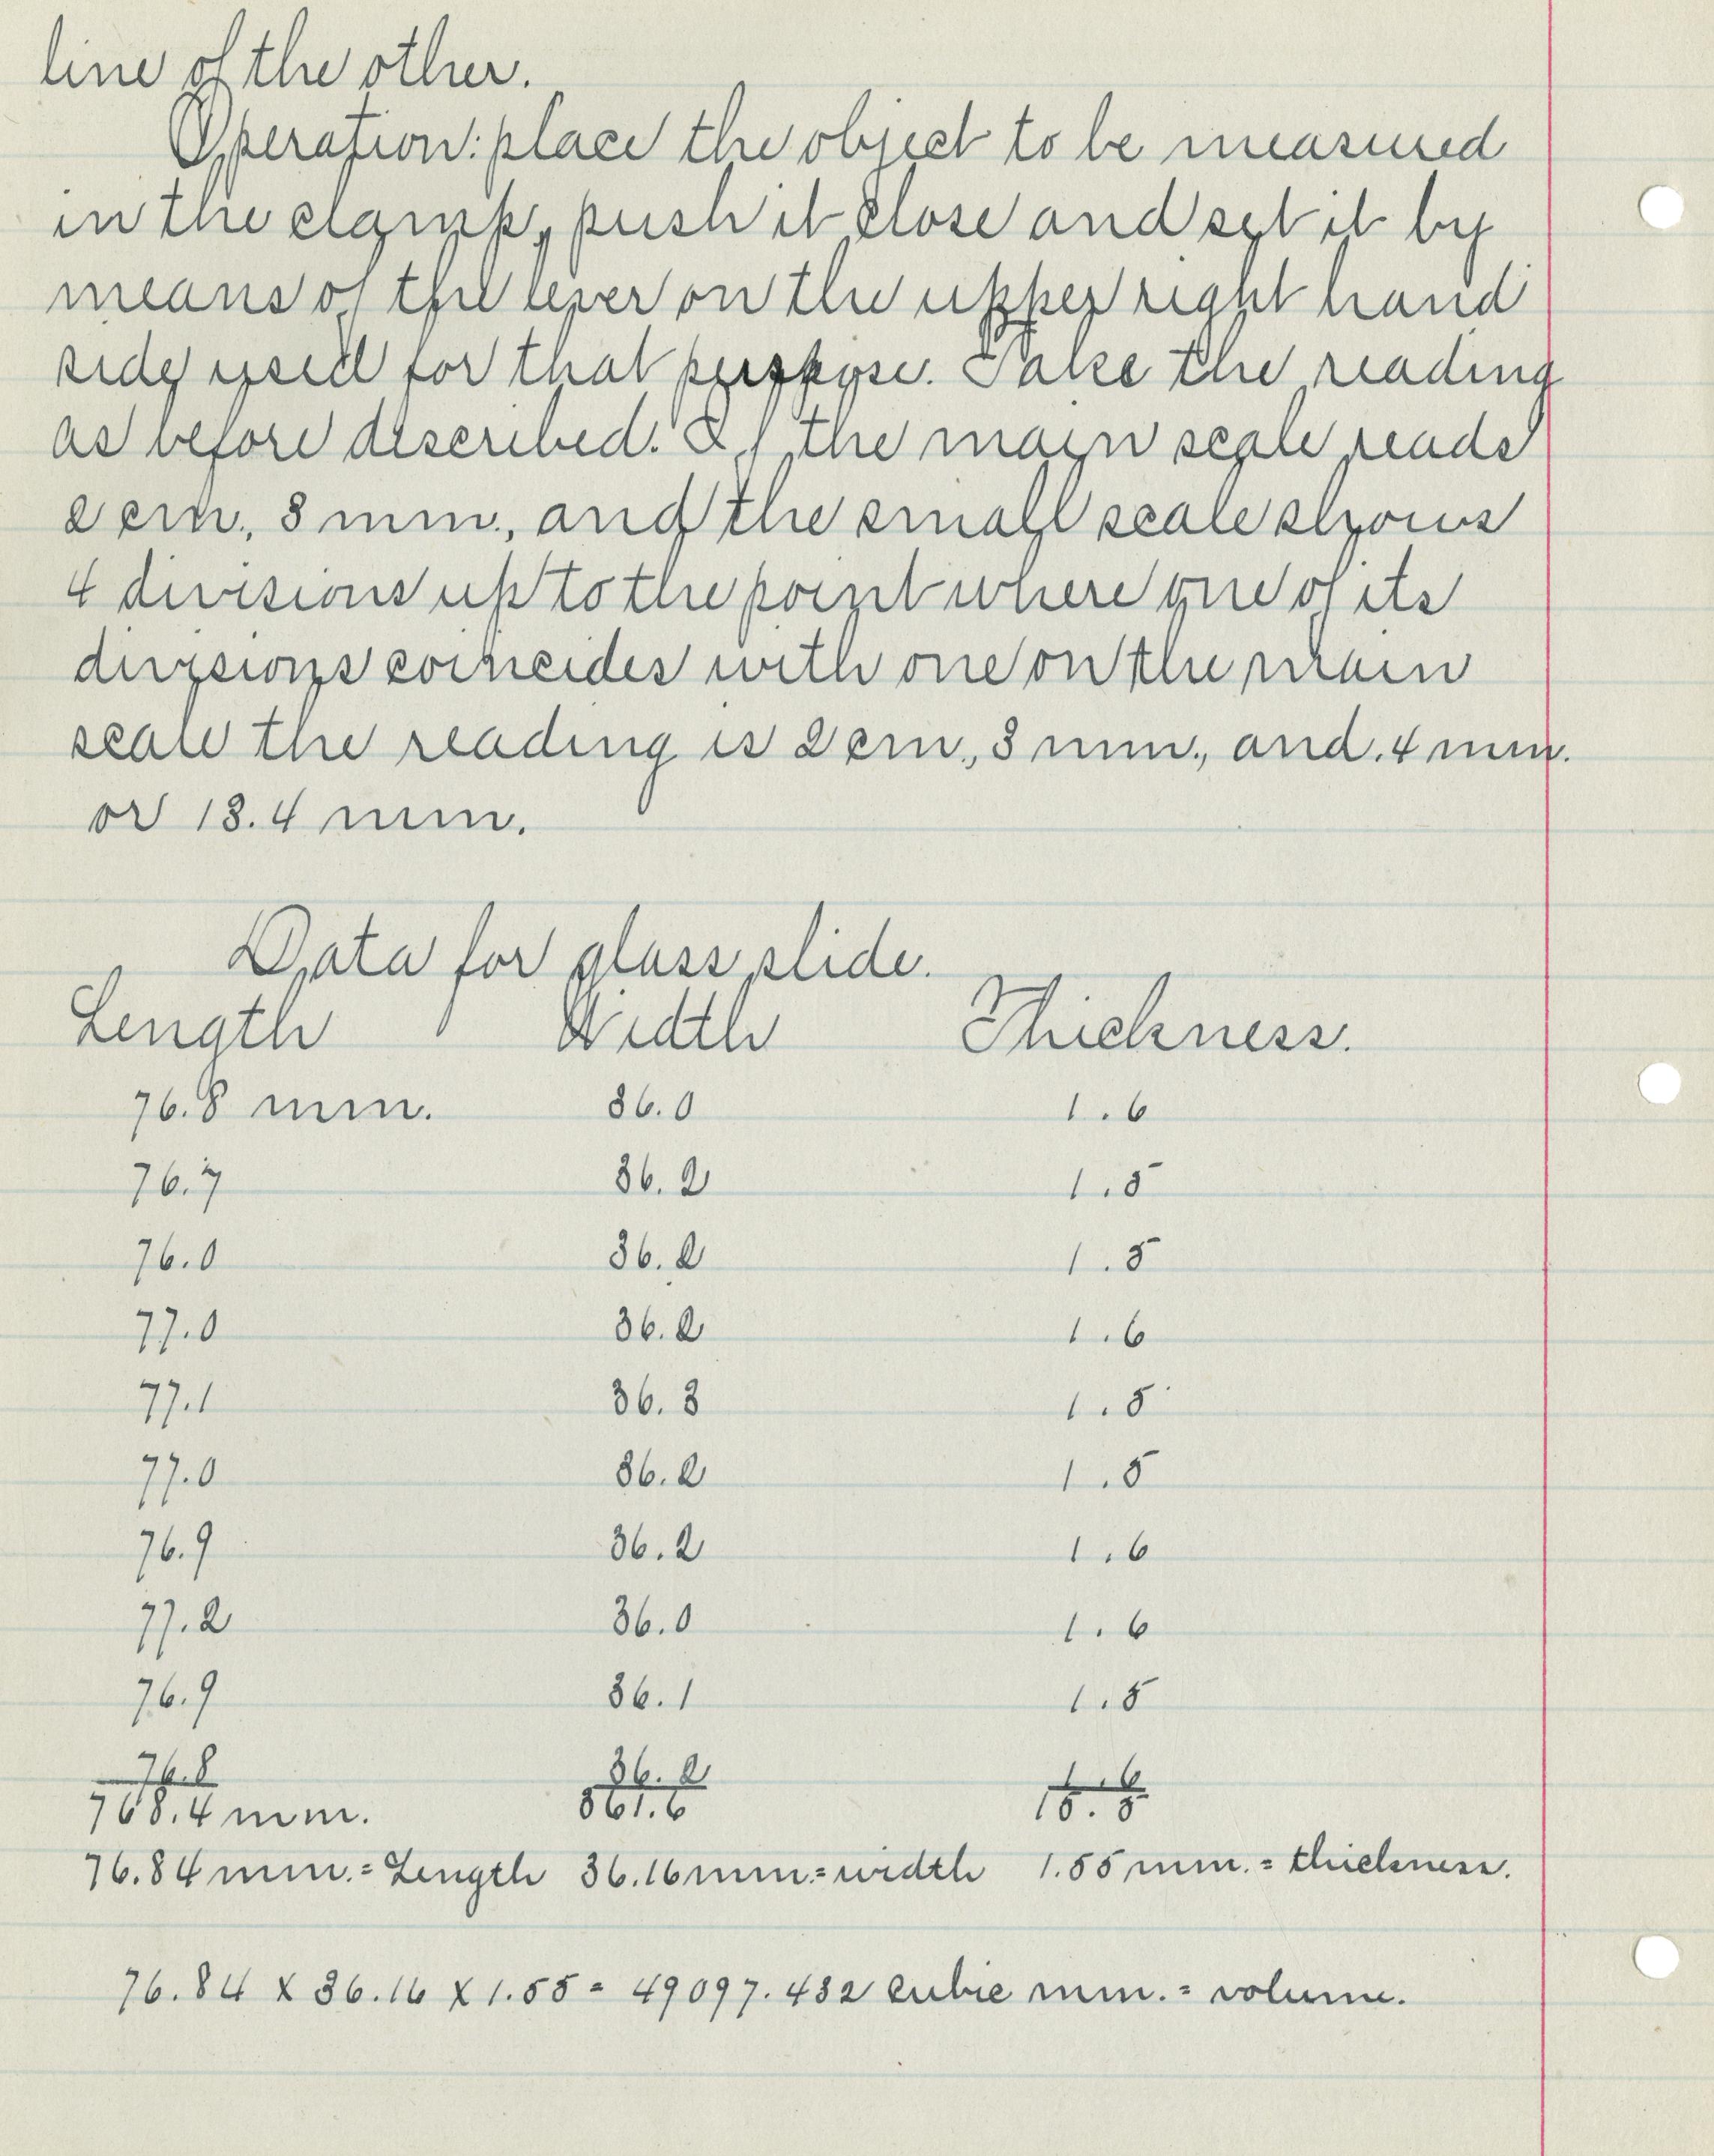 line of the other.
Operation: place the object to be measured
in the clamp, push it close and set it by
means of the lever on the upper right hand
side used for that purpose. Take the reading
as before described. If the main scale reads
2 cm., 3 mm., and the small scale shows
4 divisions up to the point where one of its
divisions coincides with one on the main
scale the reading is 2 cm., 3 mm., and .4 mm.
or 13.4 mm.
Data for glass slide.
Length Width Thickness.
76.8 mm. 36.0 1.6
76.7 36.2 1.5
76.0 36.2 1.5
77.0 36.2 1.6
77.1 36.3 1.5
77.0 36.2 1.5
76.9 36.2 1.6
77.2 36.0 1.6
76.9 36.1 1.5
76.8 36.2 1.6
768.4 mm. 361.6 15.5
76.84 mm. = Length 36.16 mm. = width 1.55 mm. = thickness.
76.84 x 36.16 x 1.55 = 49097.432 cubic mm. = volume.